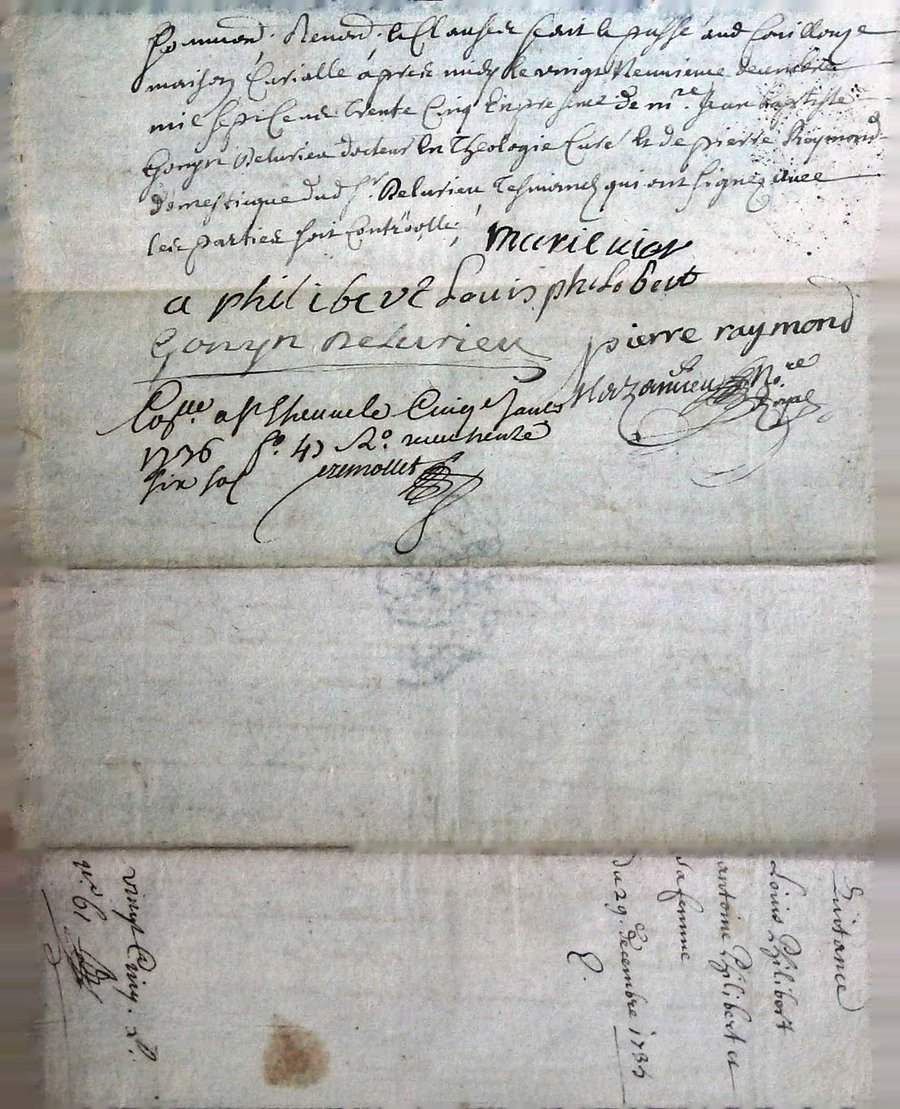 Renon. & Clauses fait & passé aud Couillouze
maison Curialle après midy le vingt Neuvieme decembre
mil sept Cens trente Cinq En presence de mre. Jean baptiste
Gonyn Delurieu docteur En Theologie Curé Et de pierre Reymond
domestique dud sr. Delurieu, Tesmoins qui ont signez avec
les parties soit Controollé,
marie
a philibert Louis philibert
Gonyn Delurieu
pierre raymond
Nore
Royal
Coñllé a St Cinq Janv
1736 fo. 43 Ro.
six sol
Quitance
Louis Philibert
antoine Philibert et
sa femme
du 29. decembre 1735
vingt Cinq.